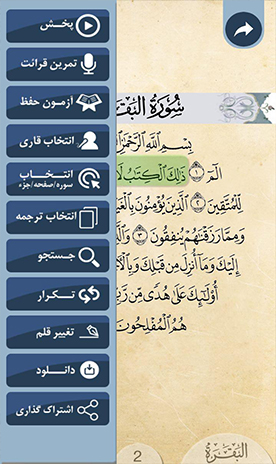 پخـش
تمرین قرائت
آزمون حفظ
انتخاب قاری
انتخـــاب
سوره/صفحه/جزء
انتخاب ترجمه
جستجو
تـکـرار
تغییر قلم
دانــلود
اشتراک گذاری
سُورَةُ البَقَ
بِسْمِ اللَّهِ الرَّحْمَٰنِ
الٓمٓ ١ ذَٰلِكَ ٱلْكِتَٰبُ لَا
لِّلْمُتَّقِينَ ٢ ٱلَّذِينَ يُؤْمِنُونَ بِٱلْغَيْ
وَمِمَّا رَزَقْنَٰهُمْ يُنفِقُونَ ٣ وَٱلَّ
إِلَيْكَ وَمَآ أُنزِلَ مِن قَبْلِكَ وَبِٱلْأ
أُوْلَٰٓئِكَ عَلَىٰ هُدًى مِّن رَّبِّ
هُمُ ٱلْمُفْلِحُونَ
2
البَقَرَة